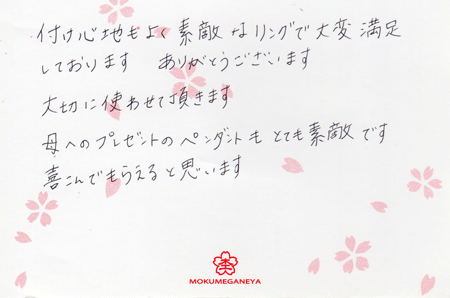 付け心地もよく素敵なリングで大変満足
しております ありがとうございます
大切に使わせて頂きます
母へのプレゼントのペンダントも とても素敵です
喜こんでもらえると思います
MOKUMEGANEYA